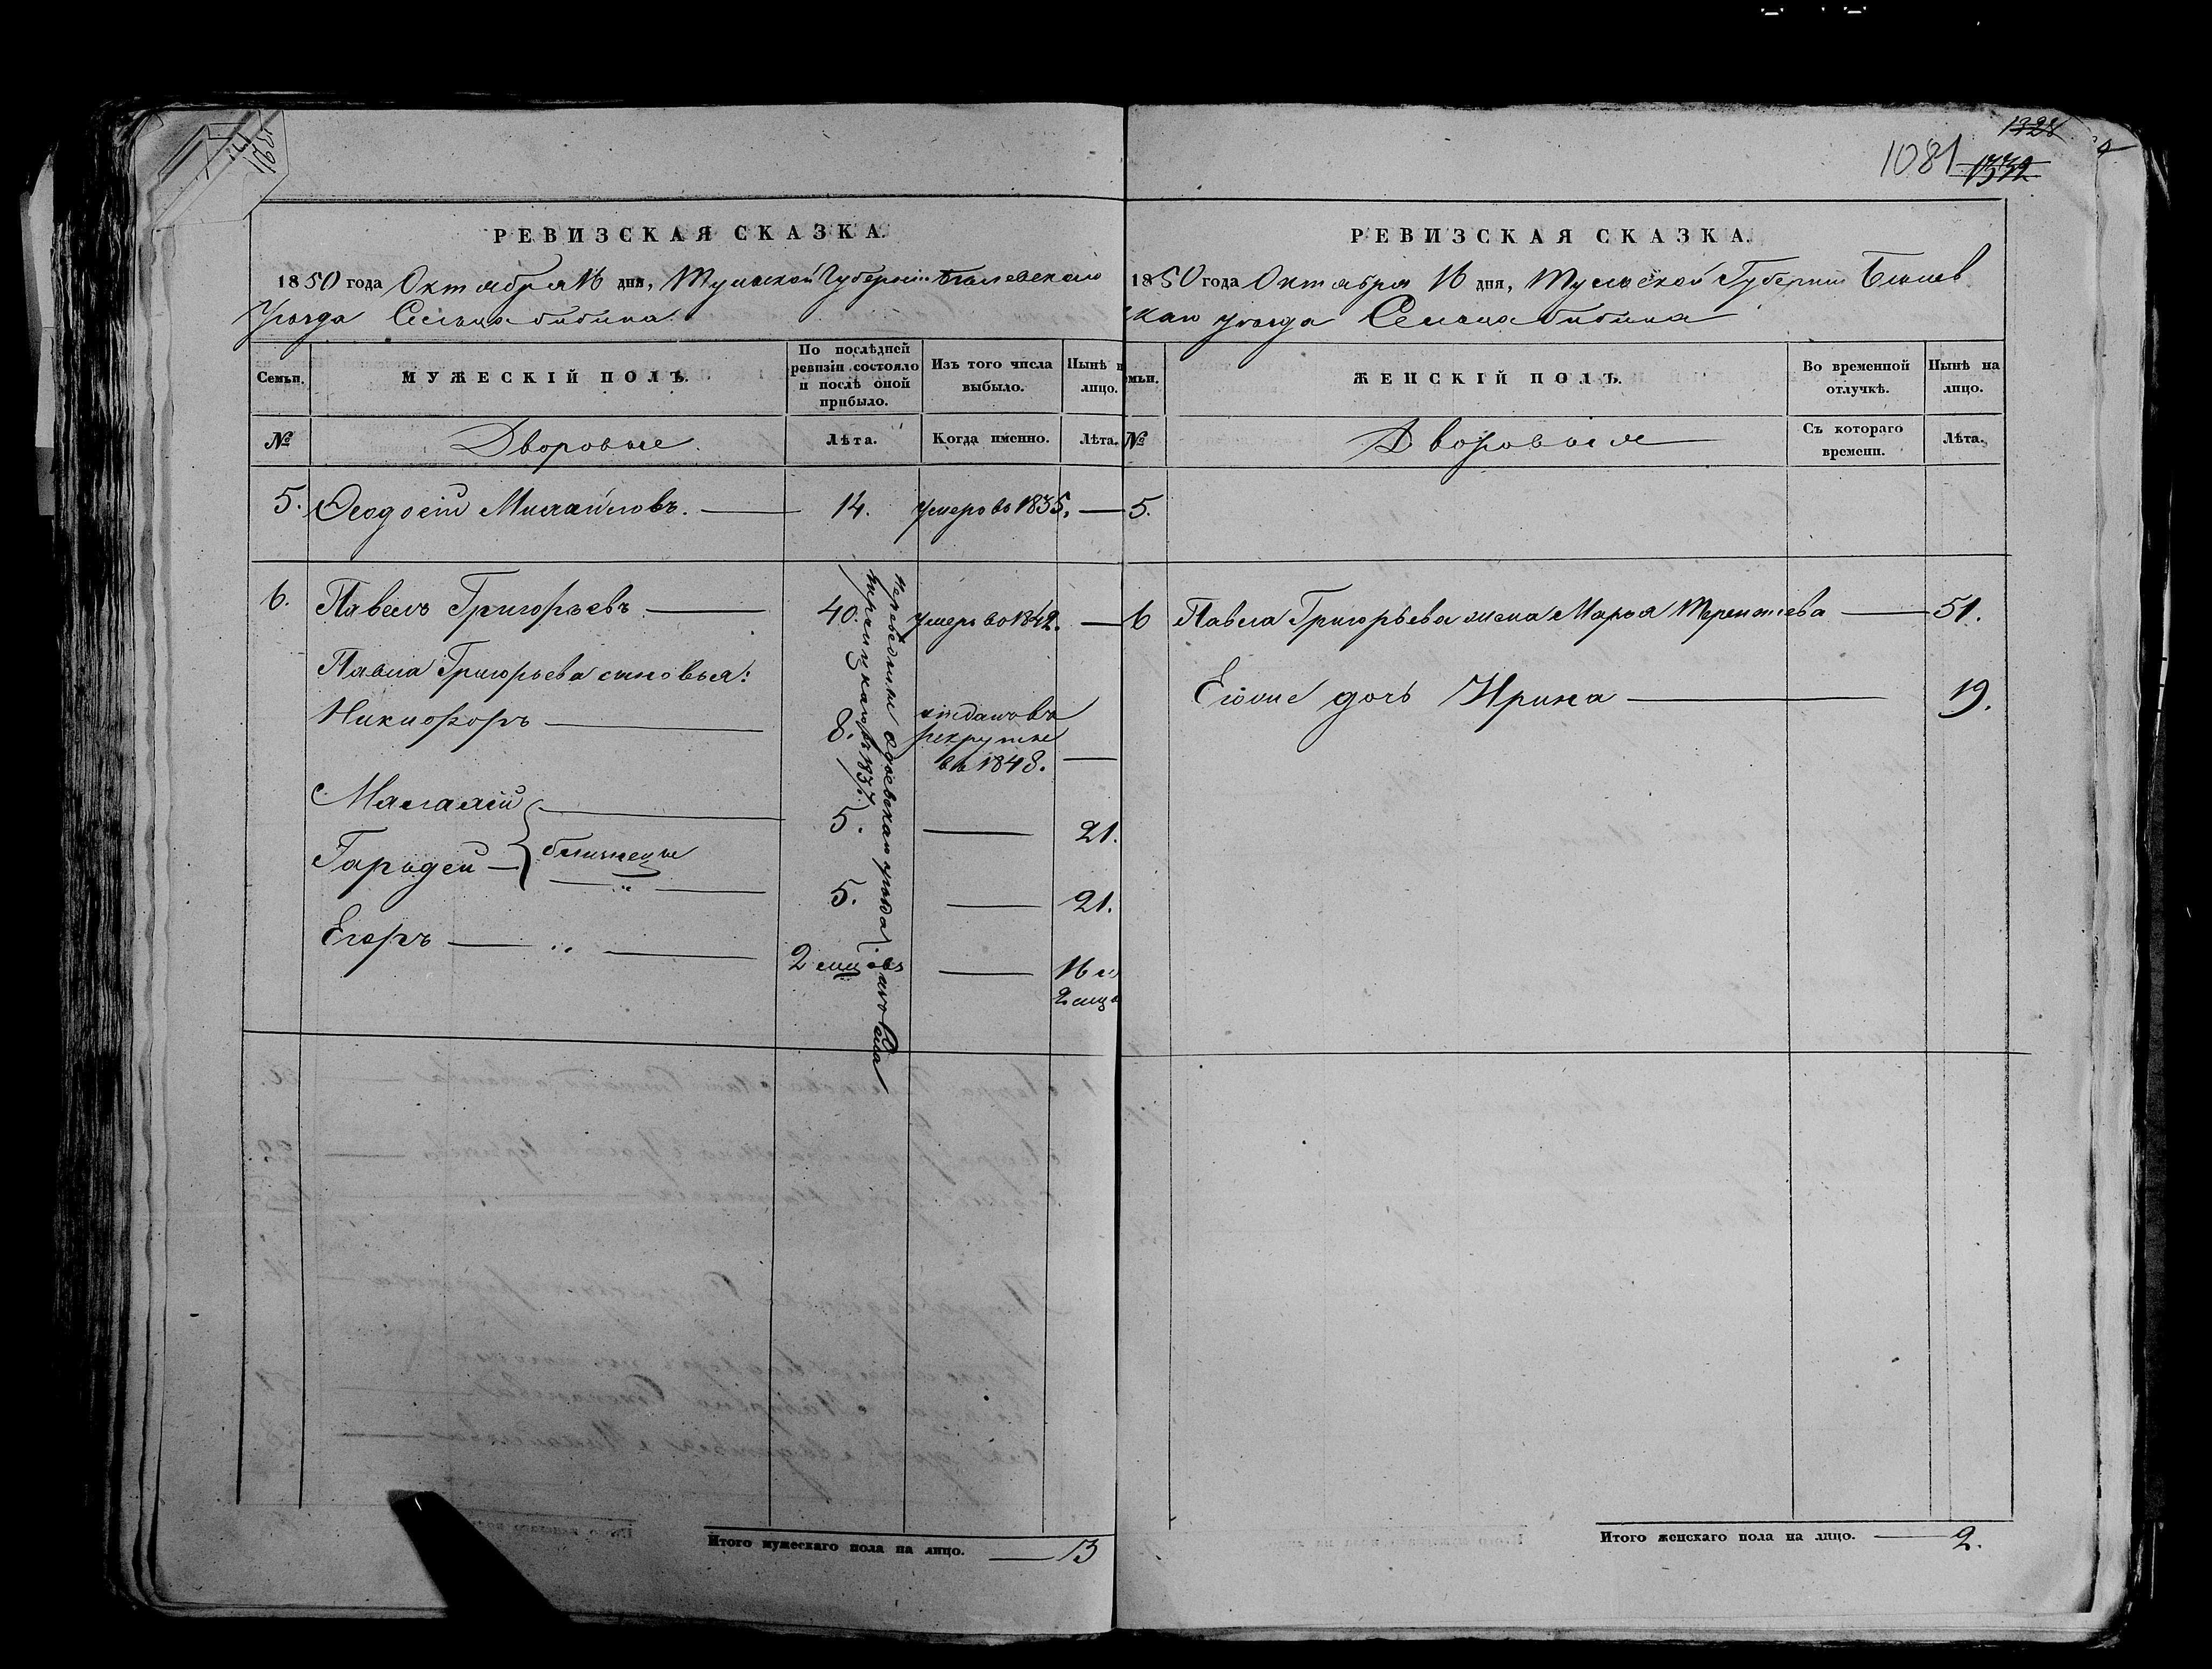 1328
1081 1332
РЕВИЗСКАЯ СКАЗКА.
1850 года Октября 16 дня, Тульской Губернiи Бѣлевскаго
Уѣзда Сельца Бибина
Семьи.
МУЖЕСКІЙ ПОЛЪ.
По послѣдней ревизіи состояло и послѣ оной прибыло.
Изъ того числа выбыло.
Нынѣ на лицо.
№
Дворовые.
Лѣта.
Когда именно.
Лѣта.
5. Ѳеодосій Михайловъ. 14. умеръ во 1835.
6. Павелъ Григорьевъ 40. умеръ во 1842.
Павла Григорьева сыновья:
Никифоръ 8. отданъ въ
рекруты
въ 1848.
Малахій 5. 21.
близнецы
Гордей 5. 21.
Егоръ 2 мцовъ 16 и
2 мцв
Переведены Одоевскаго уѣзда
въ 1837.
Итого мужескаго пола на лицо. 3
РЕВИЗСКАЯ СКАЗКА.
1850 года Октября 16 дня, Тульской Губернiи Бѣлев
скаго уѣзда Сельца Бибина
Семьи.
ЖЕНСКІЙ ПОЛЪ.
Во временной отлучкѣ.
Нынѣ на лицо.
№
Дворовыя
Съ котораго времени.
Лѣта.
5.
6 Павла Григорьева жена Марья Терентьева 51.
Его дочь Ирина 19.
Итого женскаго пола на лицо. 2.